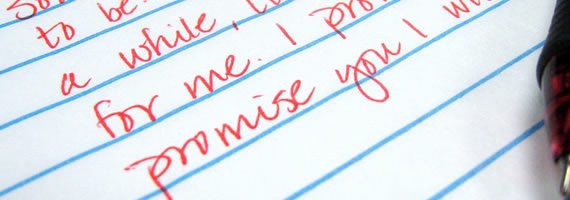 to be.
a while,
for me. I
promise you I